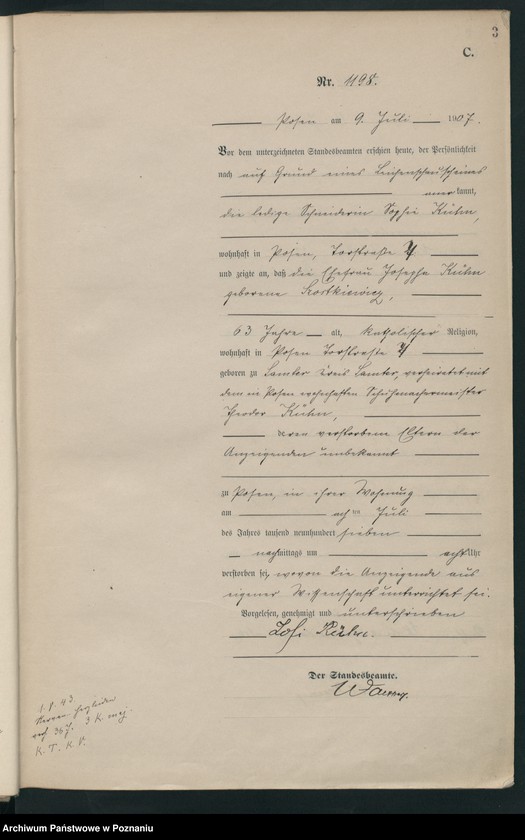 3
C.
Nr. 1198.
Posen am 9. Juli 1907.
Vor dem unterzeichneten Standesbeamten erschien heute, der Persönlichkeit
nach auf Grund eines Leichenschauscheines
anerkannt,
die ledige Schneiderin Sophie Kühn,
wohnhaft in Posen, Torstraße
und zeigte an, daß die Ehefrau Josepha Kühn
geborene
63 Jahre alt, katholischer Religion,
wohnhaft in Posen Torstraße
geboren zu Samter Kreis Samter, verheiratet mit
dem in Posen wohnhaften Schuhmachermeister
Theodor Kühn,
deren verstorbene Eltern der
Anzeigenden unbekannt
zu Posen, in ihrer Wohnung
am acht ten Juli
des Jahres tausend neunhundert sieben
nachmittags um acht Uhr
verstorben sei, wovon die Anzeigende aus
eigener Wissenschaft unterrichtet sei.
Vorgelesen, genehmigt und unterschrieben
Zofi Kühn.
Der Standesbeamte.
K. T. K. P.
Archiwum Państwowe w Poznaniu